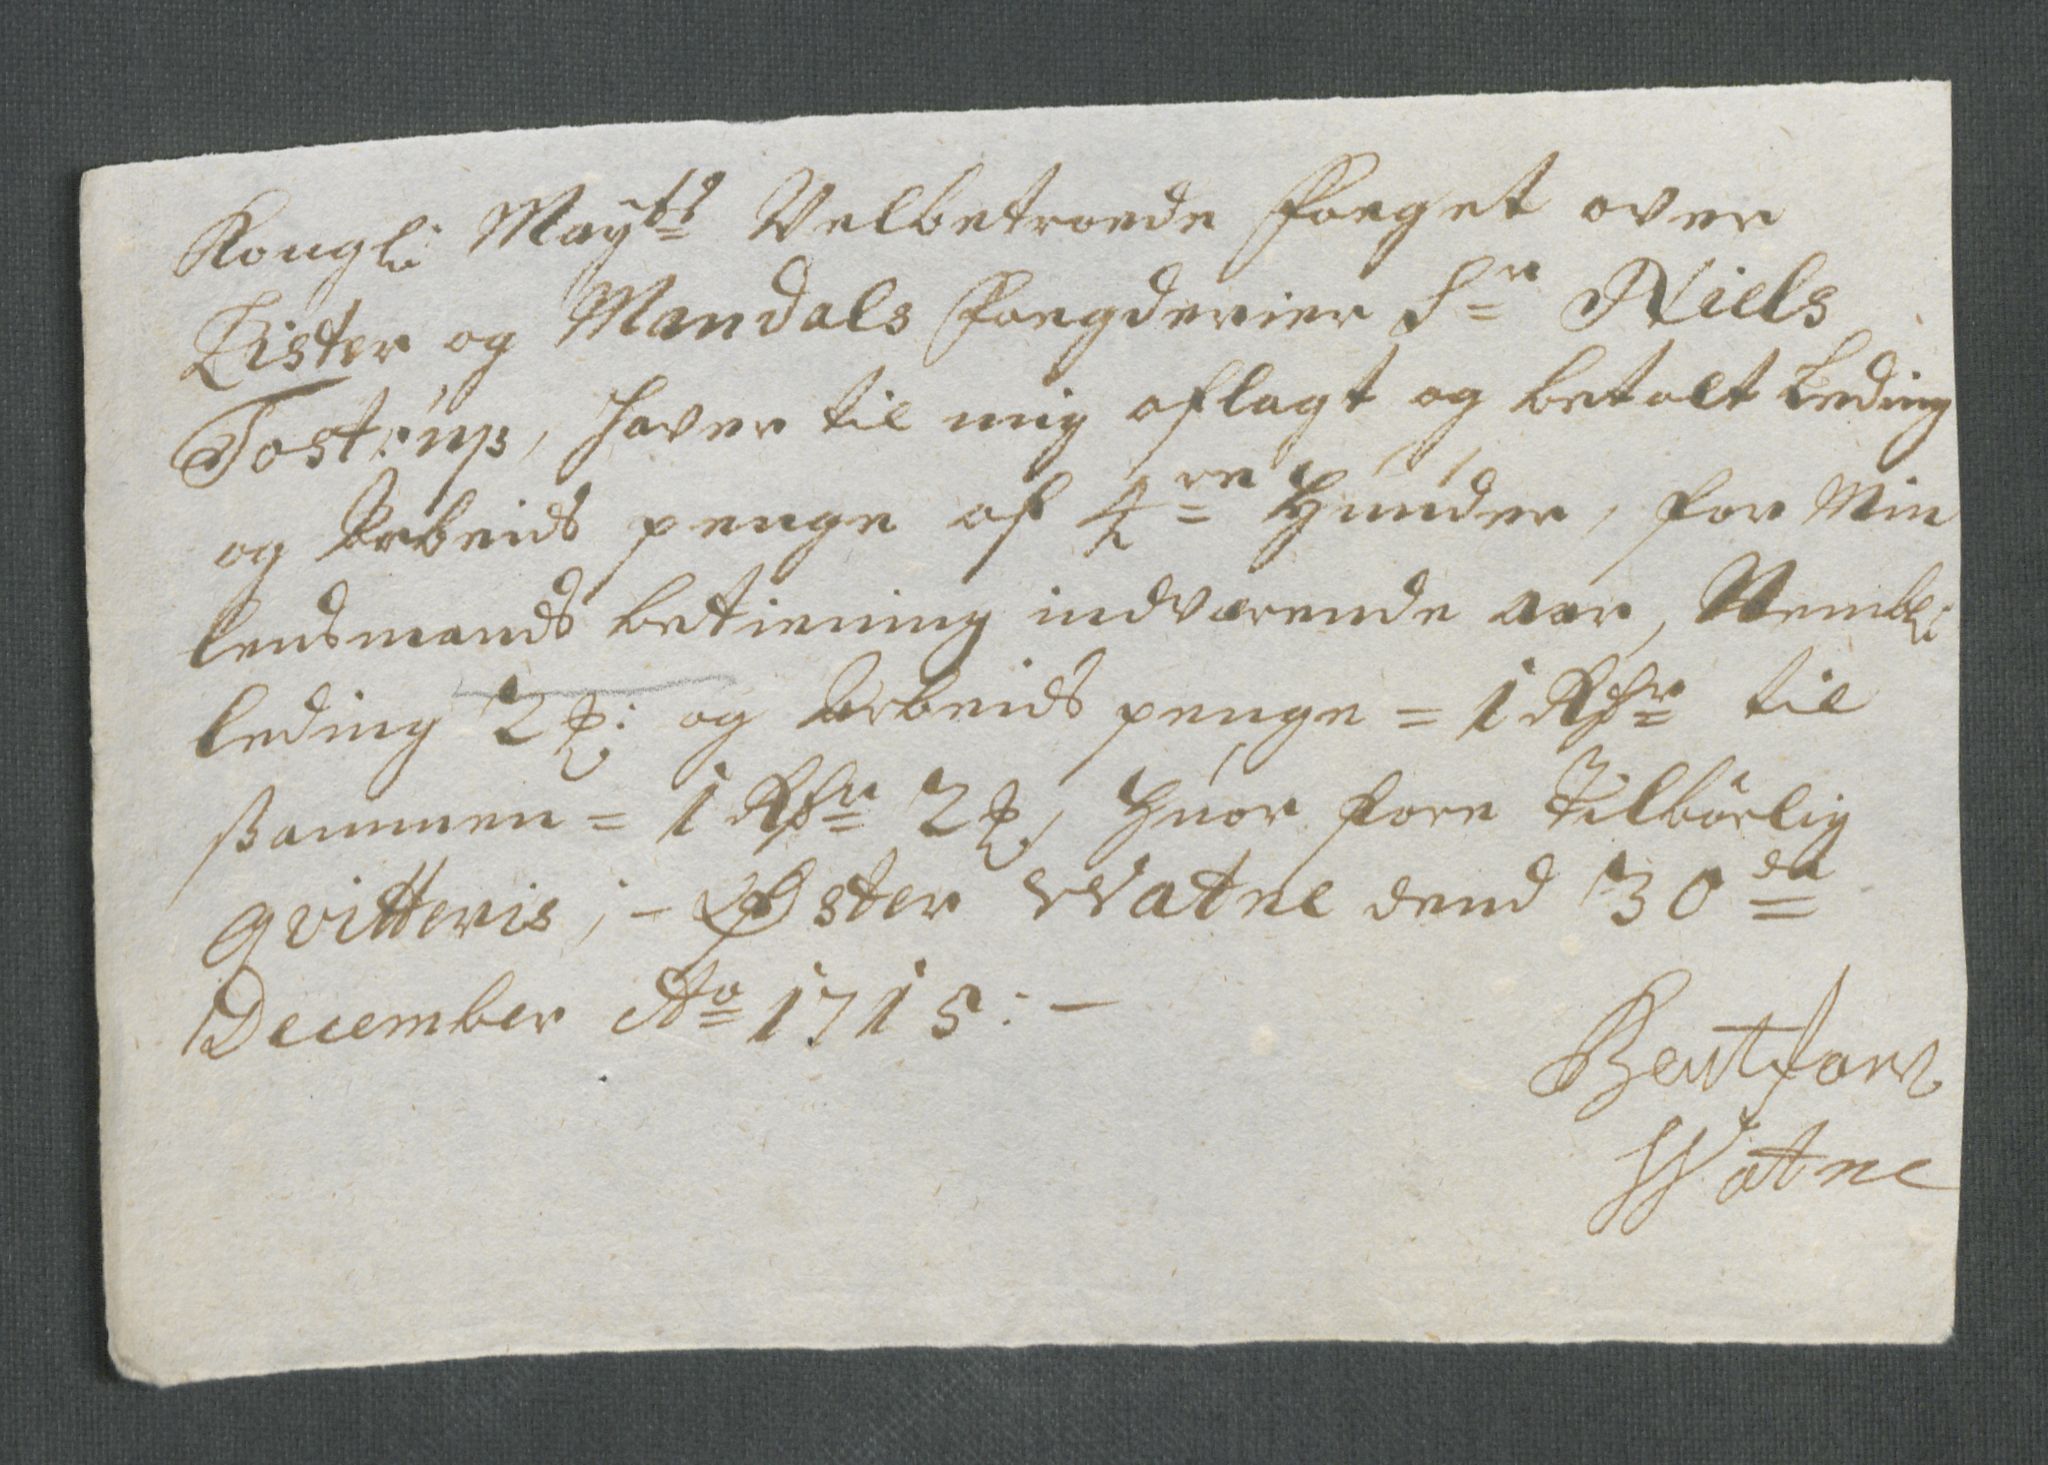 Kongl: May^ts Velbetroede Foeget over
Lister og Mandals Foegderier S^r Niels
Tostrup, haver til mig aflagt og betalt Leding
og Arbeids penge af 4^re Hunder, for Min
lensmands betiening indværende aar, Nembl:
leding 2 ß: og Arbeids penge = 1 Rdr til
sammen = 1 Rdr 2 ß, Huor fore Tilbörlig
qvitteris; - Øster Watne dend 30^de
December Ao 1715: -
Bent Jons
Watne